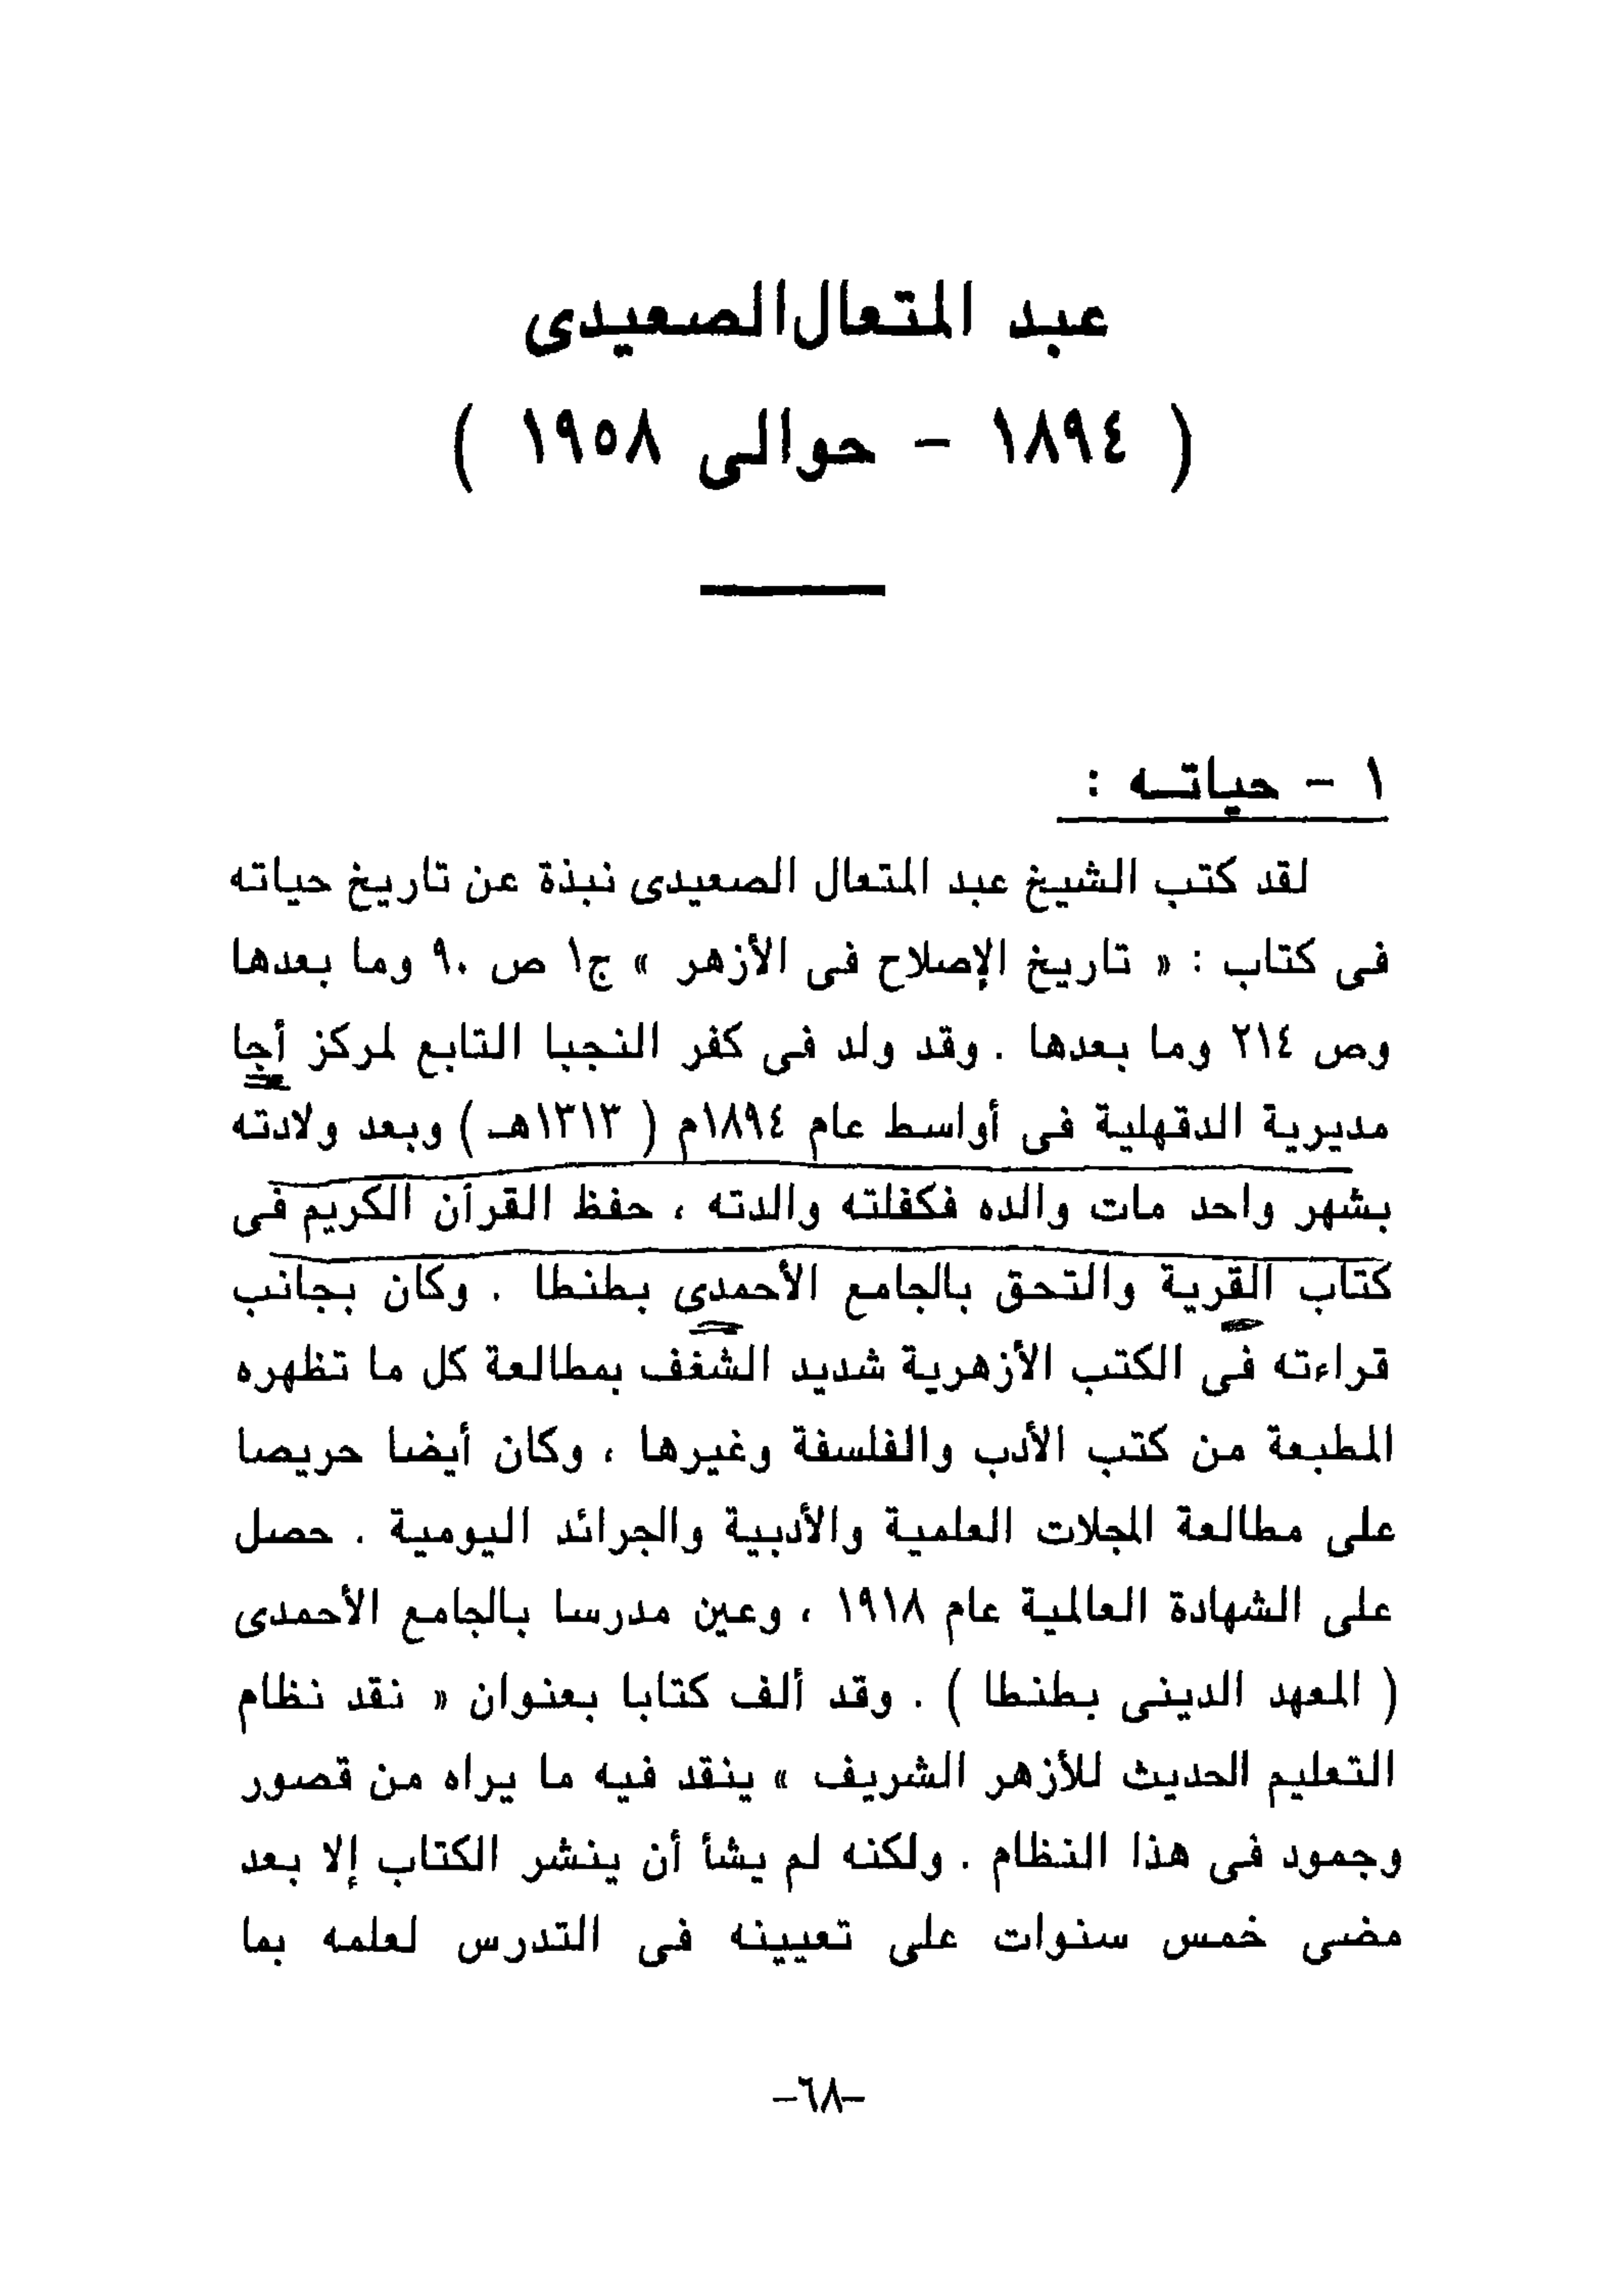 عبد المتعال الصعيدى
( ١٨٩٤ - حوالى ١٩٥٨ )
١ - حياته :
لقد كتب الشيخ عبد المتعال الصعيدى نبذة عن تاريخ حياته
فى كتاب : « تاريخ الإصلاح فى الأزهر » ج١ ص ٩٠ وما بعدها
وص ٢١٤ وما بعدها . وقد ولد فى كفر النجبا التابع لمركز أجا
مديرية الدقهلية فى أواسط عام ١٨٩٤م ( ١٣١٣هـ ) وبعد ولادته
بشهر واحد مات والده فكفلته والدته ، حفظ القرآن الكريم فى
كتاب القرية والتحق بالجامع الأحمدى بطنطا . وكان بجانب
قراءته فى الكتب الأزهرية شديد الشغف بمطالعة كل ما تظهره
المطبعة من كتب الأدب والفلسفة وغيرها ، وكان أيضا حريصا
على مطالعة المجلات العلمية والأدبية والجرائد اليومية . حصل
على الشهادة العالمية عام ١٩١٨ ، وعين مدرسا بالجامع الأحمدى
( المعهد الدينى بطنطا ) . وقد ألف كتابا بعنوان « نقد نظام
التعليم الحديث للأزهر الشريف » ينقد فيه ما يراه من قصور
وجمود فى هذا النظام . ولكنه لم يشأ أن ينشر الكتاب إلا بعد
مضى خمس سنوات على تعيينه فى التدرس لعلمه بما
-٦٨-